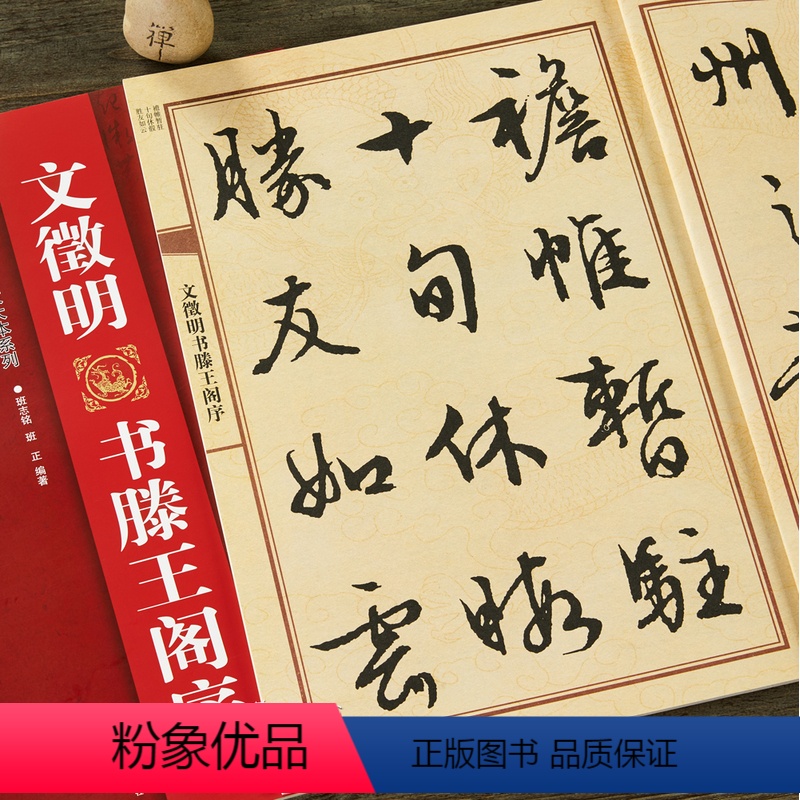 禪
文徵明
书滕王阁序
大本系列
●班志铭 班 正 编著
襜帷暂驻
十旬休假
胜友如云
文徵明书滕王阁序
州
襜帷暫駐
十旬休暇
勝友如雲
粉象优品
正版图书 品质保证